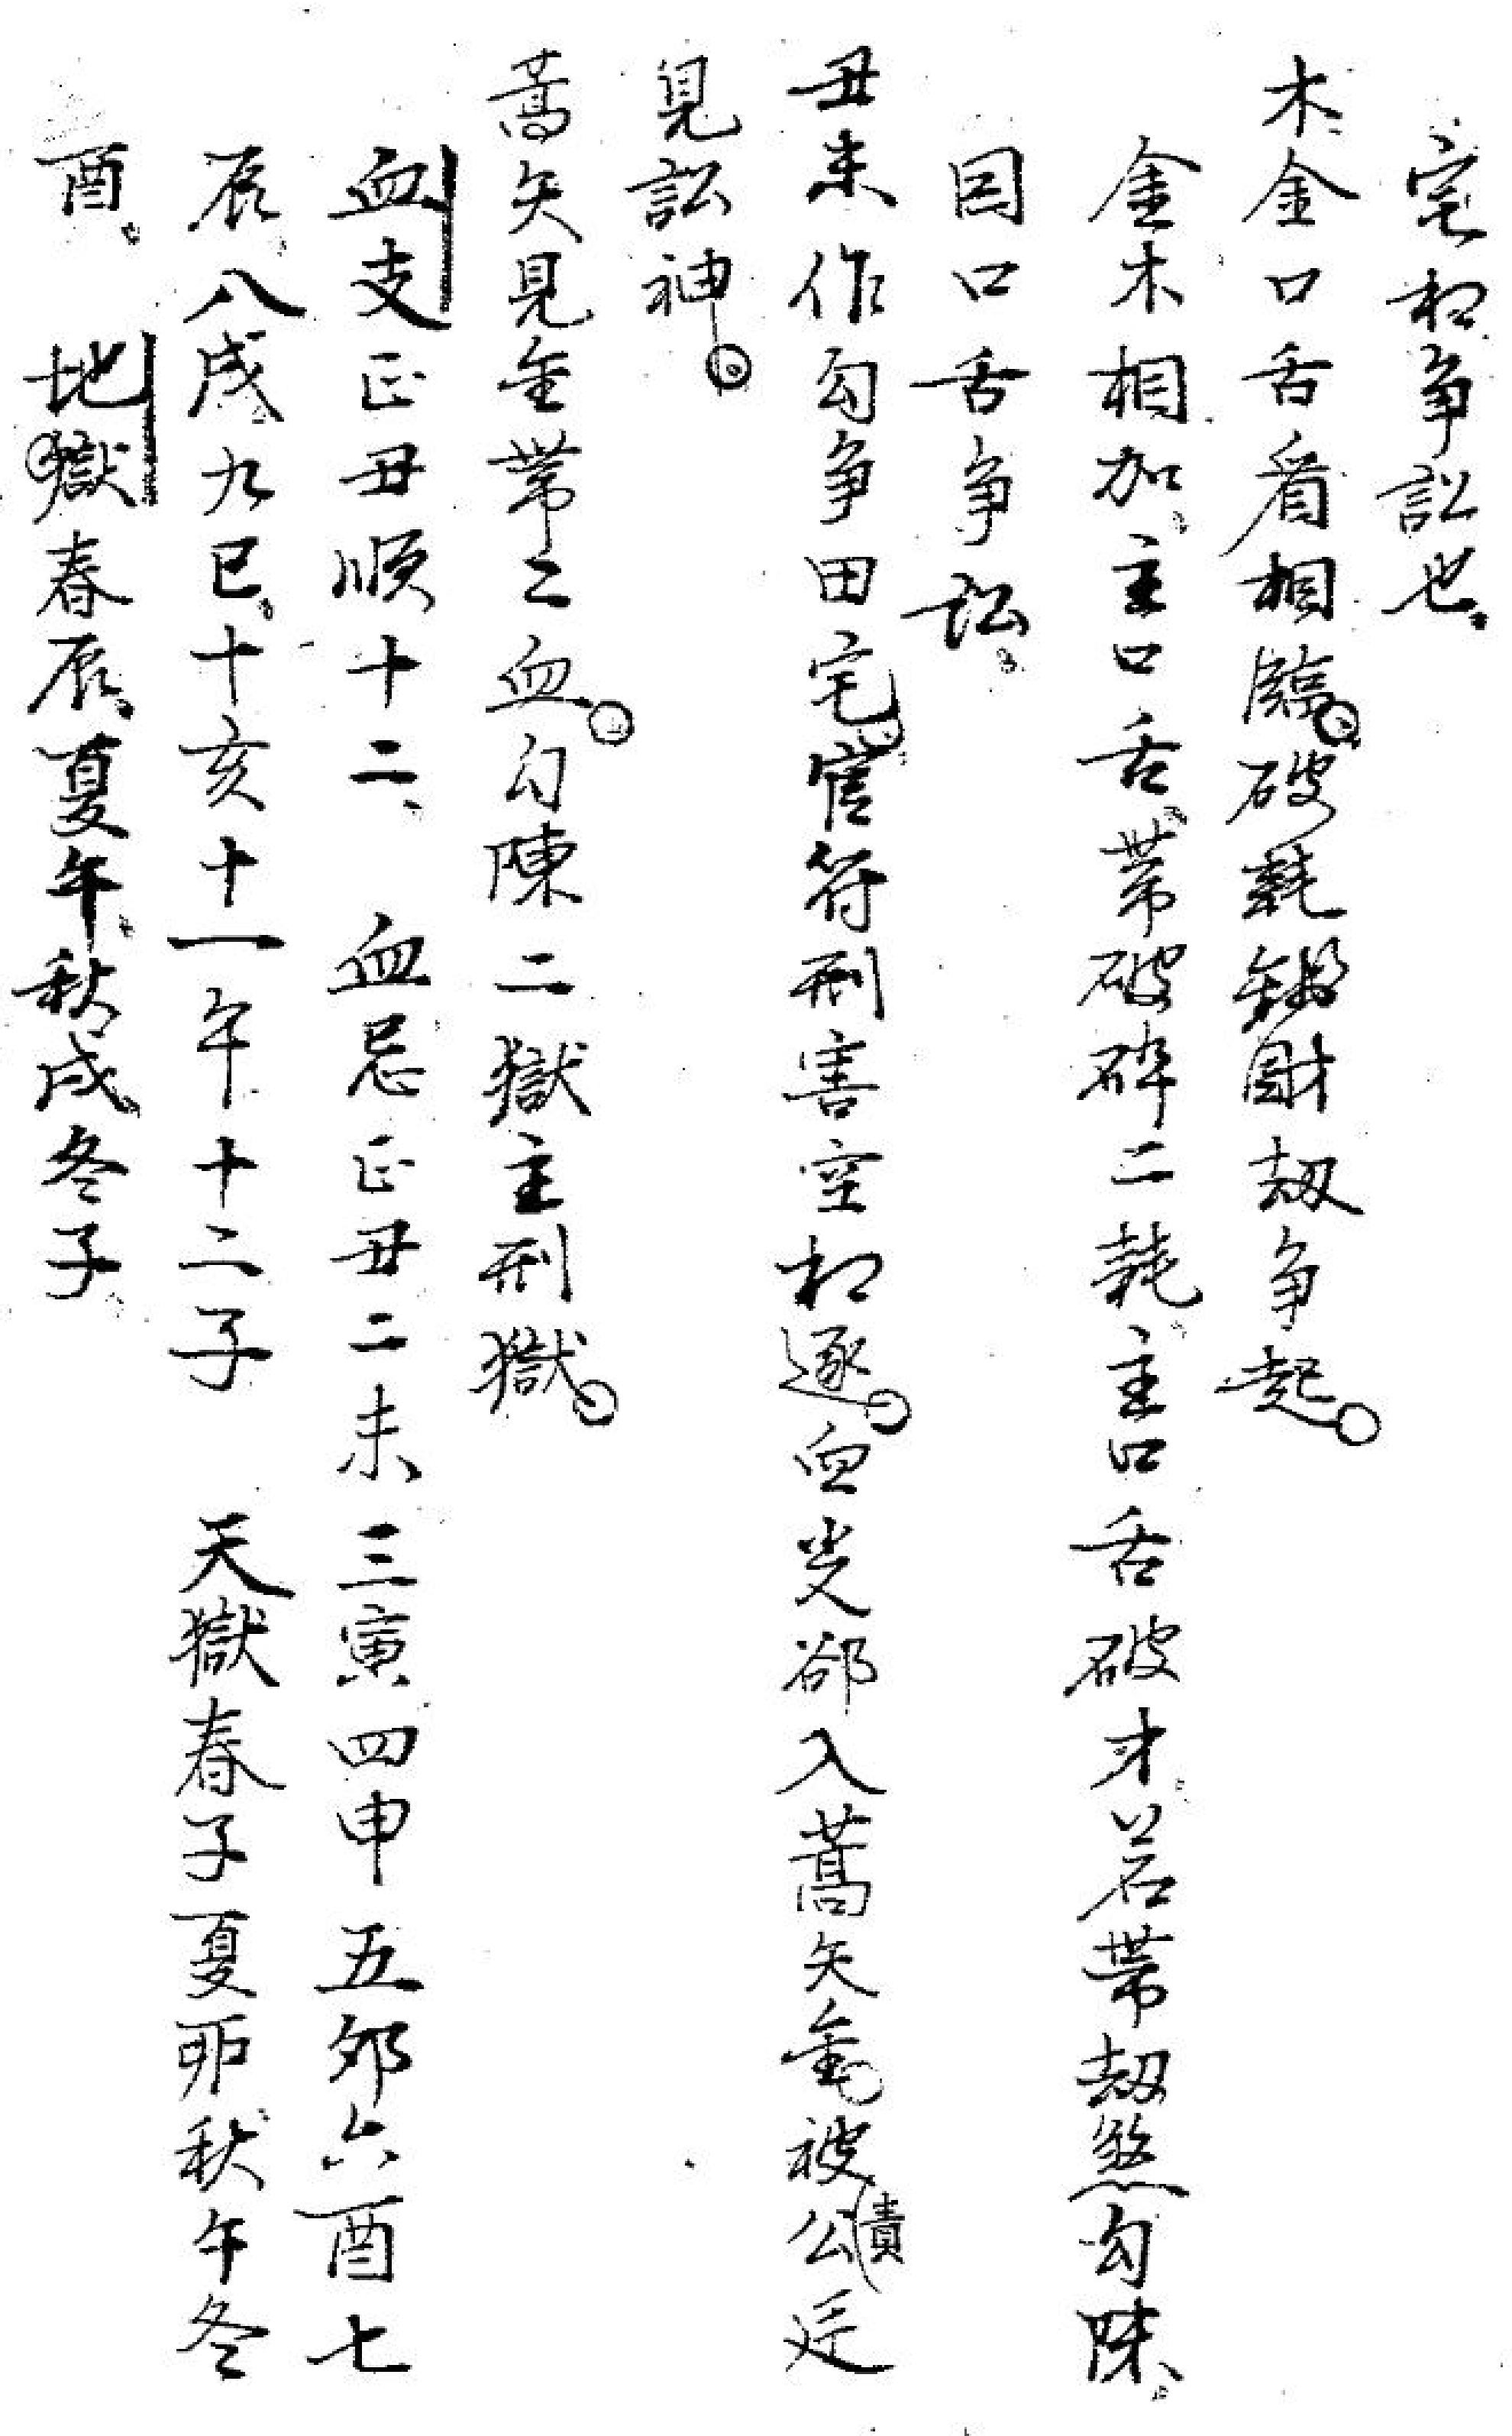 宅相争訟也
木金口舌看相臨破耗鍜財刼争起
金木相加主口舌帶破碎二耗主口舌破才若帶刼煞勾陳
因口舌争訟
丑未作勾争田宅官符刑害空相逐血光部入蒿矢金被公責廷
見訟神
蒿矢見金帶二血勾陳二獄主刑獄
血支正丑順十二 血忌正丑二未三寅四申五卯六酉七
辰八戌九巳十亥十一午十二子 天獄春子夏卯秋午冬
酉 地獄春辰夏午秋戌冬子